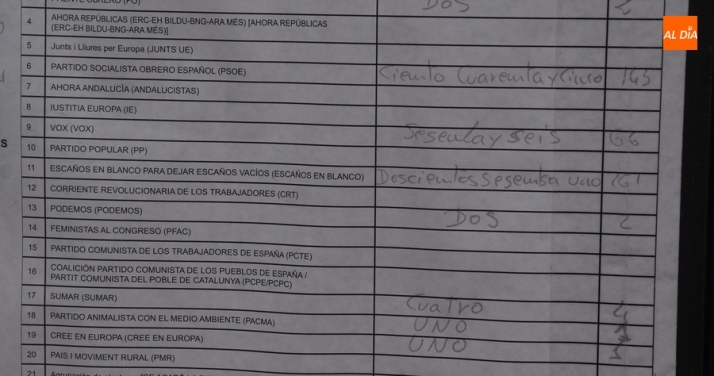 DOS 2
4 AHORA REPÚBLICAS (ERC-EH BILDU-BNG-ARA MÉS) [AHORA REPÚBLICAS
(ERC-EH BILDU-BNG-ARA MÉS)]
AL DÍA
5 Junts i Lliures per Europa (JUNTS UE)
6 PARTIDO SOCIALISTA OBRERO ESPAÑOL (PSOE) Ciento Cuarenta y Cinco 145
7 AHORA ANDALUCÍA (ANDALUCISTAS)
8 IUSTITIA EUROPA (IE)
9 VOX (VOX) Sesenta y seis 66
10 PARTIDO POPULAR (PP)
11 ESCAÑOS EN BLANCO PARA DEJAR ESCAÑOS VACÍOS (ESCAÑOS EN BLANCO) Doscientos Sesenta uno 261
12 CORRIENTE REVOLUCIONARIA DE LOS TRABAJADORES (CRT)
13 PODEMOS (PODEMOS) DOS 2
14 FEMINISTAS AL CONGRESO (PFAC)
15 PARTIDO COMUNISTA DE LOS TRABAJADORES DE ESPAÑA (PCTE)
16 COALICIÓN PARTIDO COMUNISTA DE LOS PUEBLOS DE ESPAÑA /
PARTIT COMUNISTA DEL POBLE DE CATALUNYA (PCPE/PCPC)
17 SUMAR (SUMAR) Cuatro 4
18 PARTIDO ANIMALISTA CON EL MEDIO AMBIENTE (PACMA) UNO 1
19 CREE EN EUROPA (CREE EN EUROPA) UNO 1
20 PAIS I MOVIMENT RURAL (PMR)
21